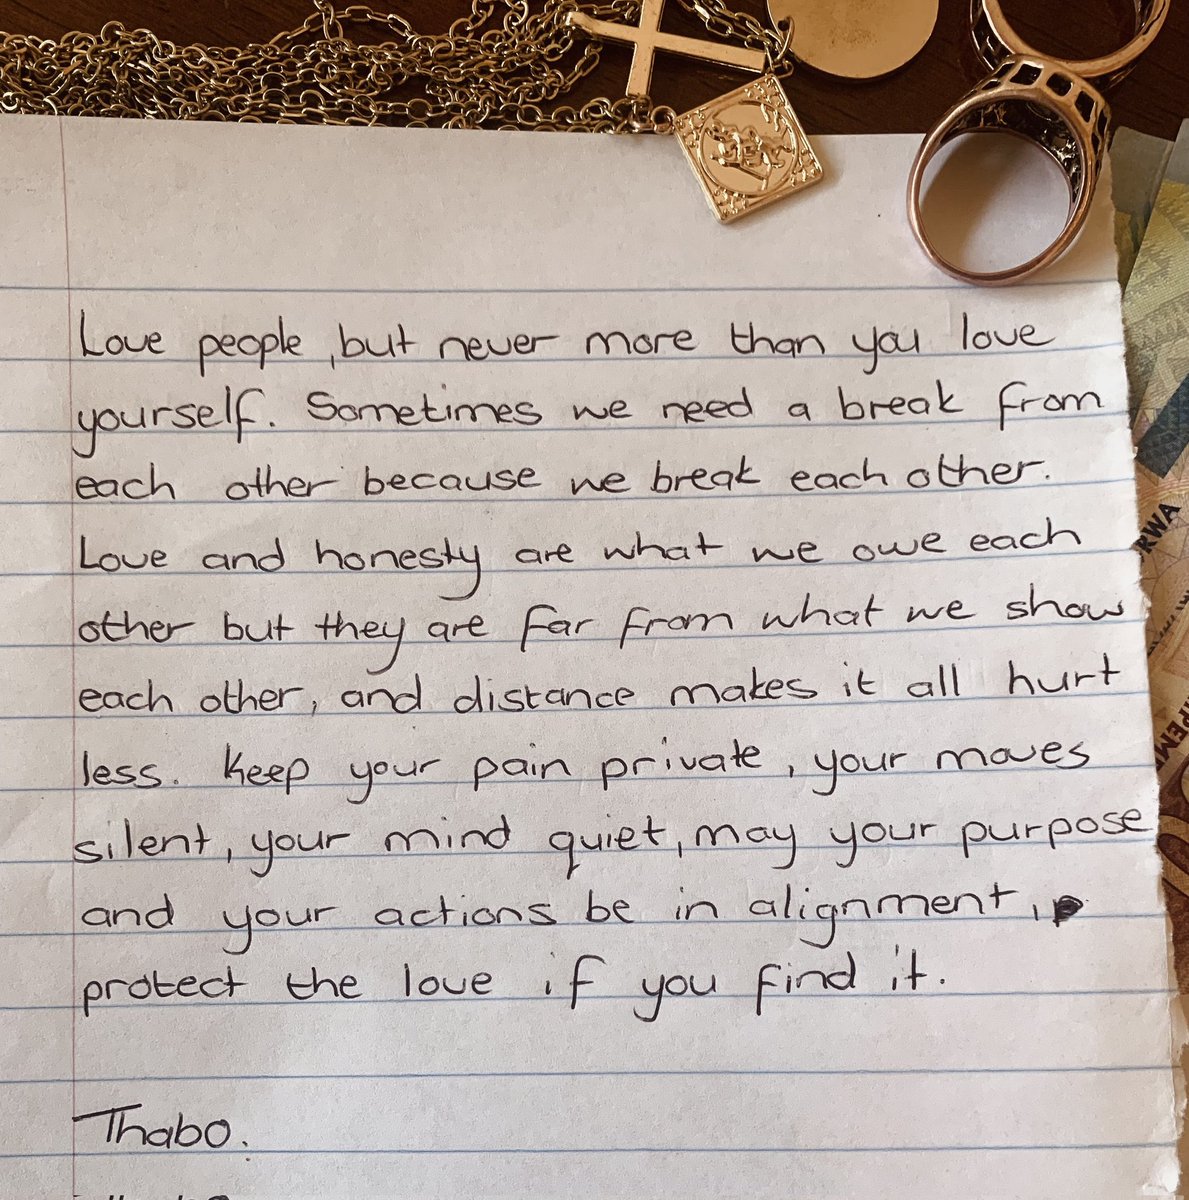 Love people, but never more than you love
yourself. Sometimes we need a break from
each other because we break each other.
Love and honesty are what we owe each
other but they are far from what we show
each other, and distance makes it all hurt
less. Keep your pain private, your moves
silent, your mind quiet, may your purpose
and your actions be in alignment,
protect the love if you find it.
Thabo.
RWA